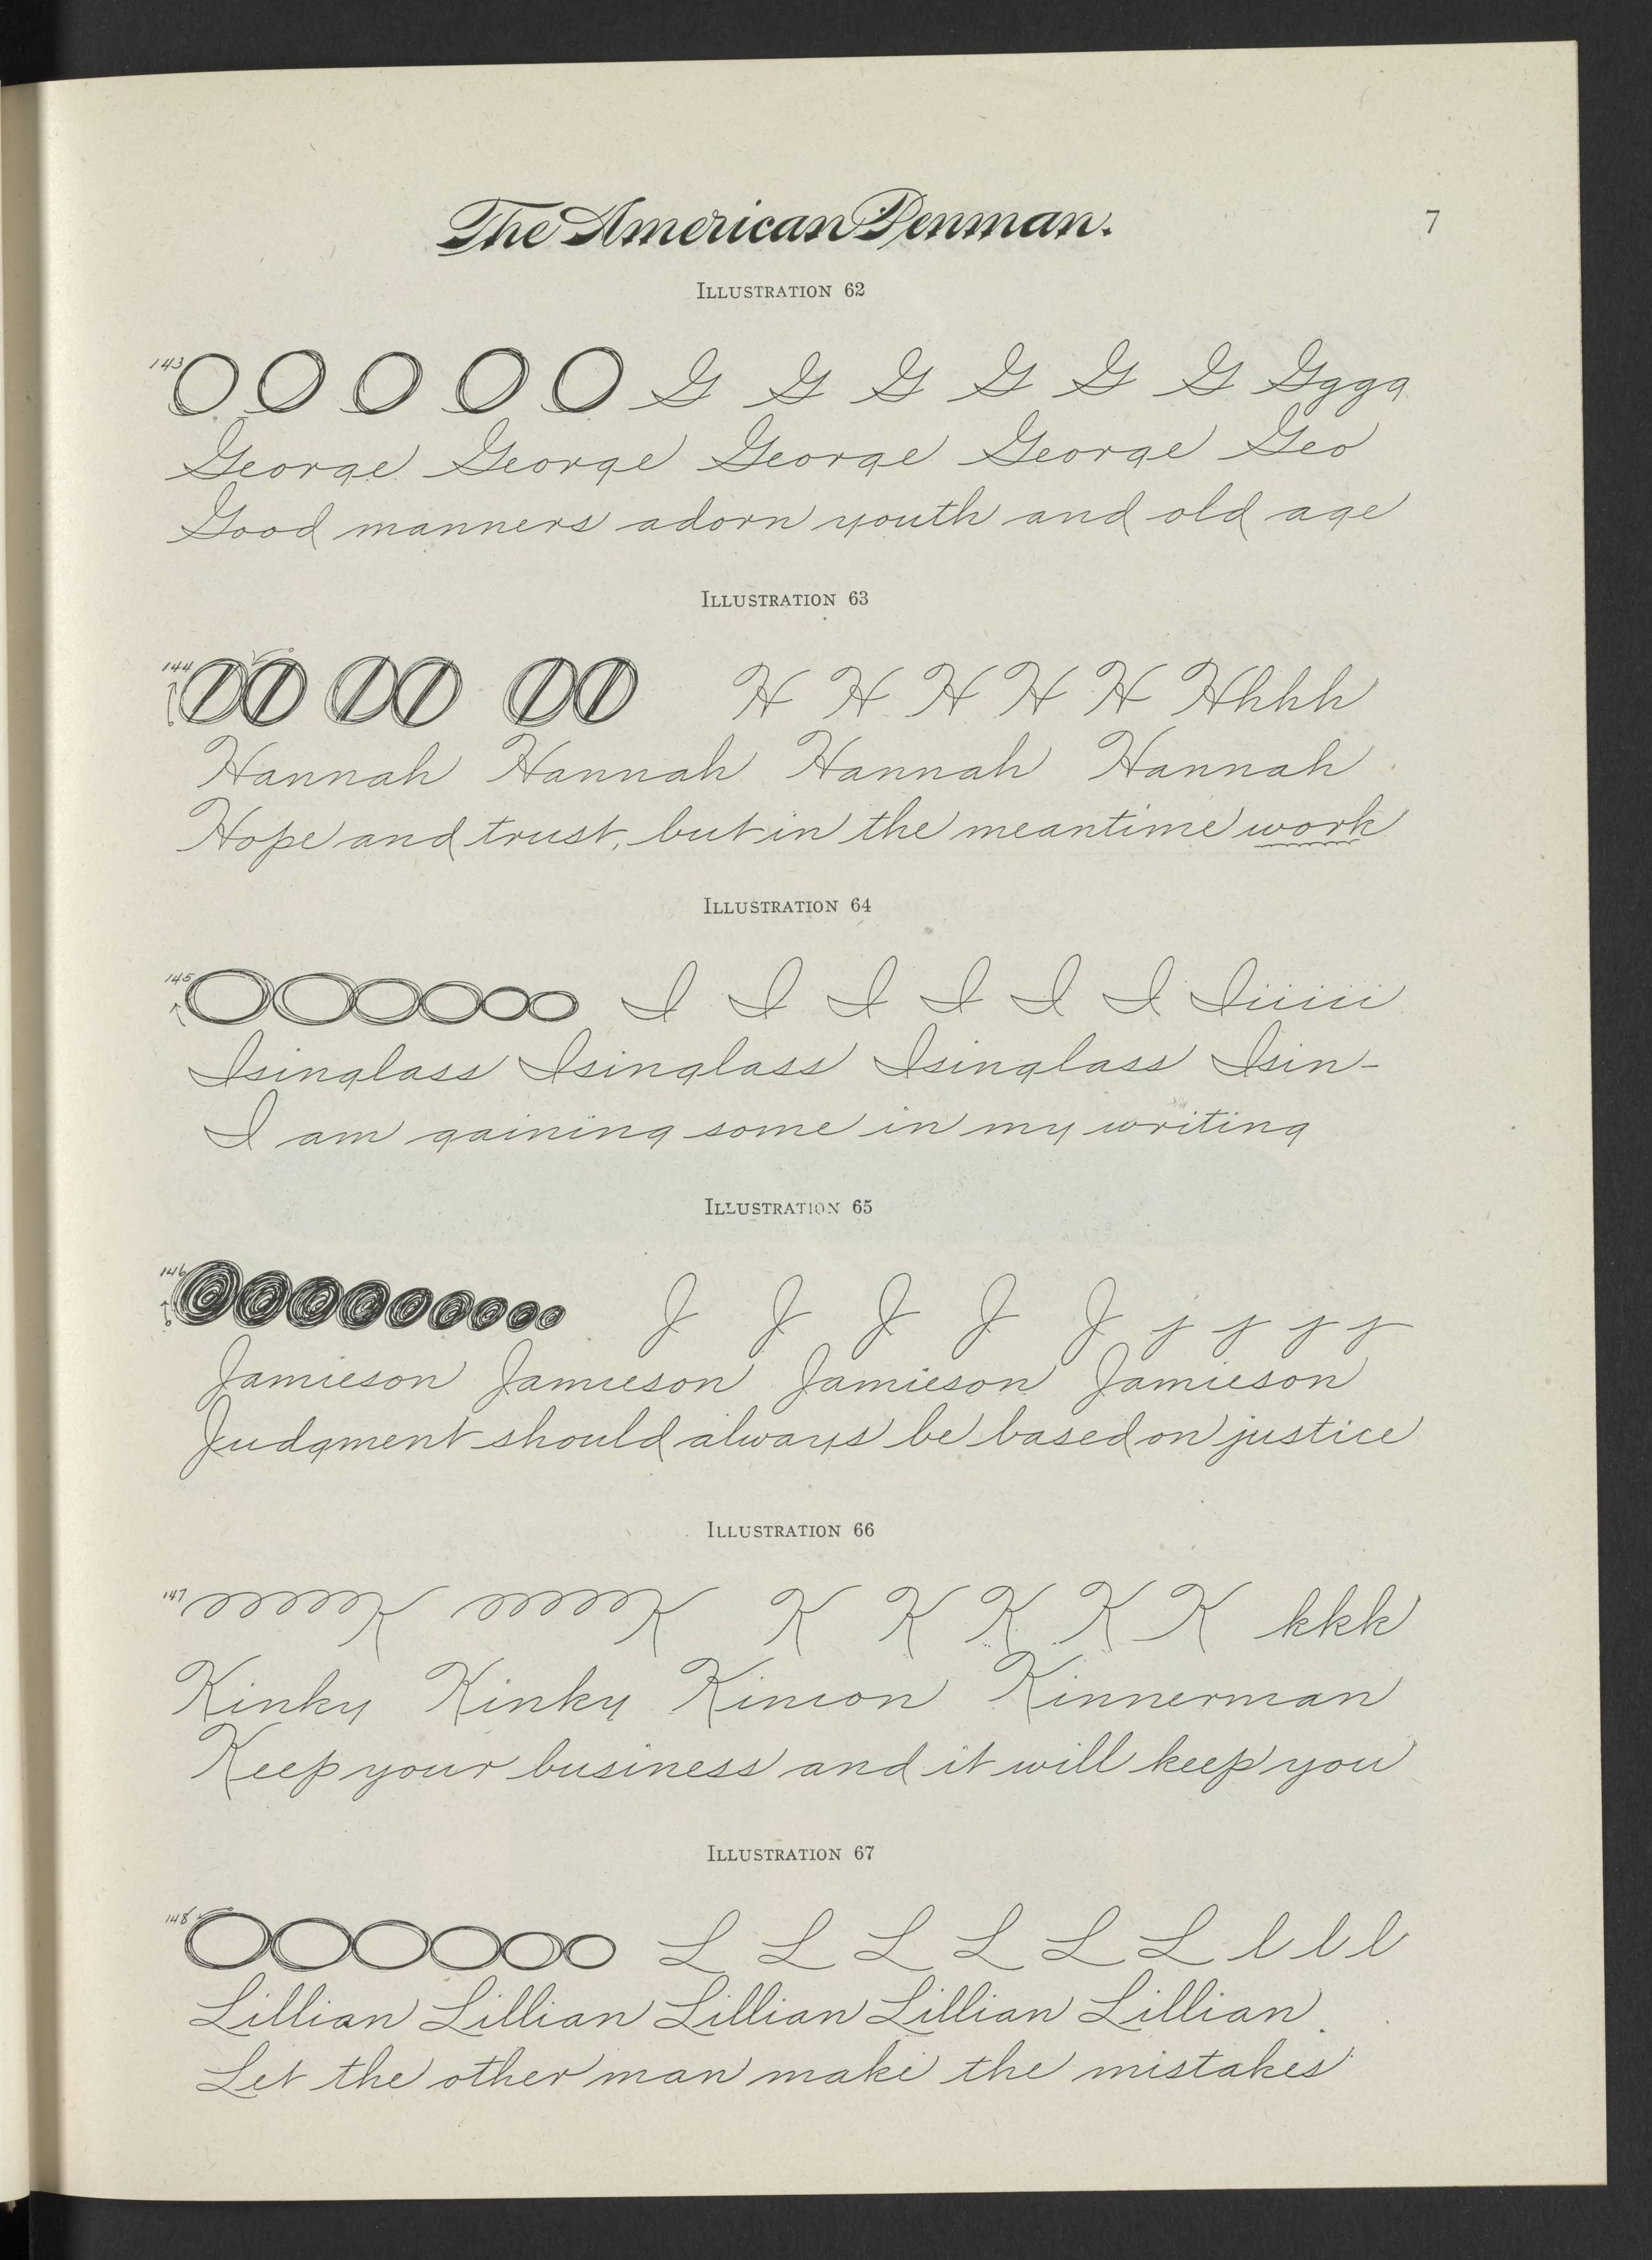 The American Penman.
7
ILLUSTRATION 62
143 G G G G G G Gggg
George George George George Geo
Good manners adorn youth and old age
ILLUSTRATION 63
144 H H H H H Hhhh
Hannah Hannah Hannah Hannah
Hope and trust, but in the meantime work
ILLUSTRATION 64
145 I I I I I I Iiiiii
Isinglass Isinglass Isinglass Isin-
I am gaining some in my writing
ILLUSTRATION 65
146 J J J J J j j j j
Jamieson Jamieson Jamieson Jamieson
Judgment should always be based on justice
ILLUSTRATION 66
147 K K K K K K K kkk
Kinky Kinky Kinion Kinnerman
Keep your business and it will keep you
ILLUSTRATION 67
148 L L L L L L l l l
Lillian Lillian Lillian Lillian Lillian
Let the other man make the mistakes